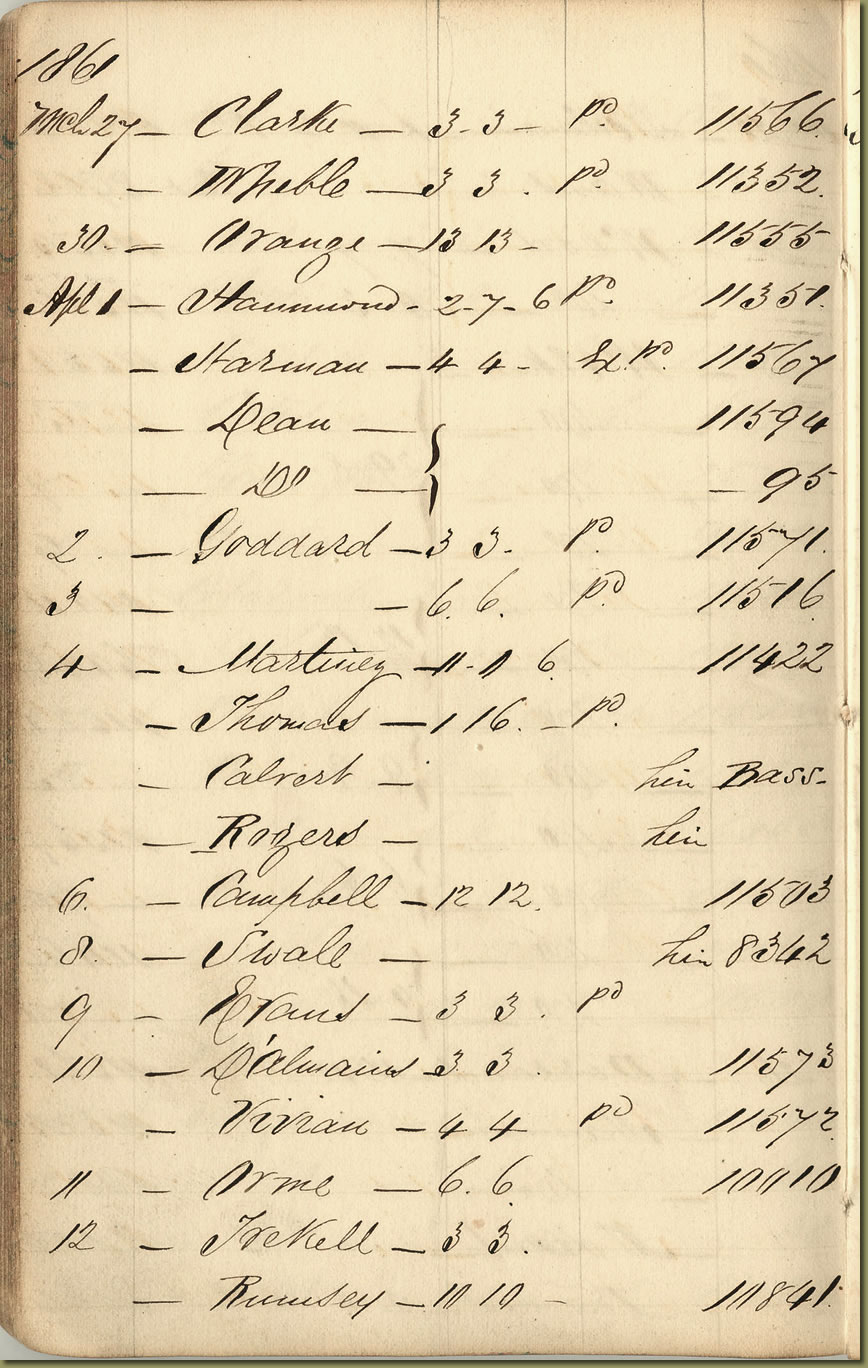 1861
Mch 27 — Clarke — 3-3 — pd. 11566.
— Wheble — 3 3 . pd. 11352.
30. — Orange — 13 13 - 11555
Apl 1 — Hammond - 2-7-6 pd. 11351.
— Harman — 4 4 - pd. 11567
— Dean — } 11594
— Do — } — 95
2. — Goddard — 3 3. pd. 11571.
3 — — 6. 6. pd. 11516
4 — Martinez — 11-11 6. 11422
— Thomas — 1 16. — pd.
— Calvert — hin Bass-
— Rogers — hin
6. — Campbell — 12 12. 11503
8. — Swale — hin 8342
9 - Evans — 3 3 . pd
10 — D'almaine 3 3 . 11573
— Vivian — 4 4 pd 11572.
11 - Orme — 6. 6 10010
12 — Trekell — 3 3.
— Rumsey — 10 10 - 10841.